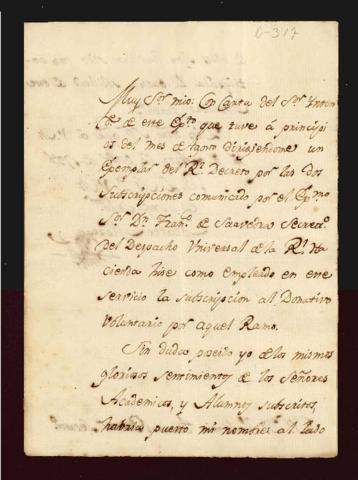 6-317
Muy Sor. mio: Con Carta del Sor. Yntend
de este Exto. que tuve á principi
os del mes de Agosto dirigiendome un
Exemplar del Rl. Decreto por las dos
Subscripciones comunicado por el Exmo
Sor. Dn. Franco. de Saavedra Secreto.
del Despacho Universal de la Rl. Ha
cienda hise como empleado en este
servicio la subscripcion al Donativo
Voluntario por aquel Ramo.
Sin duda poseido yo de los mismos
gloriosos sentimientos de los Señores
Academicos, y Alumnos subscritos,
habria puesto mi nombre al lado